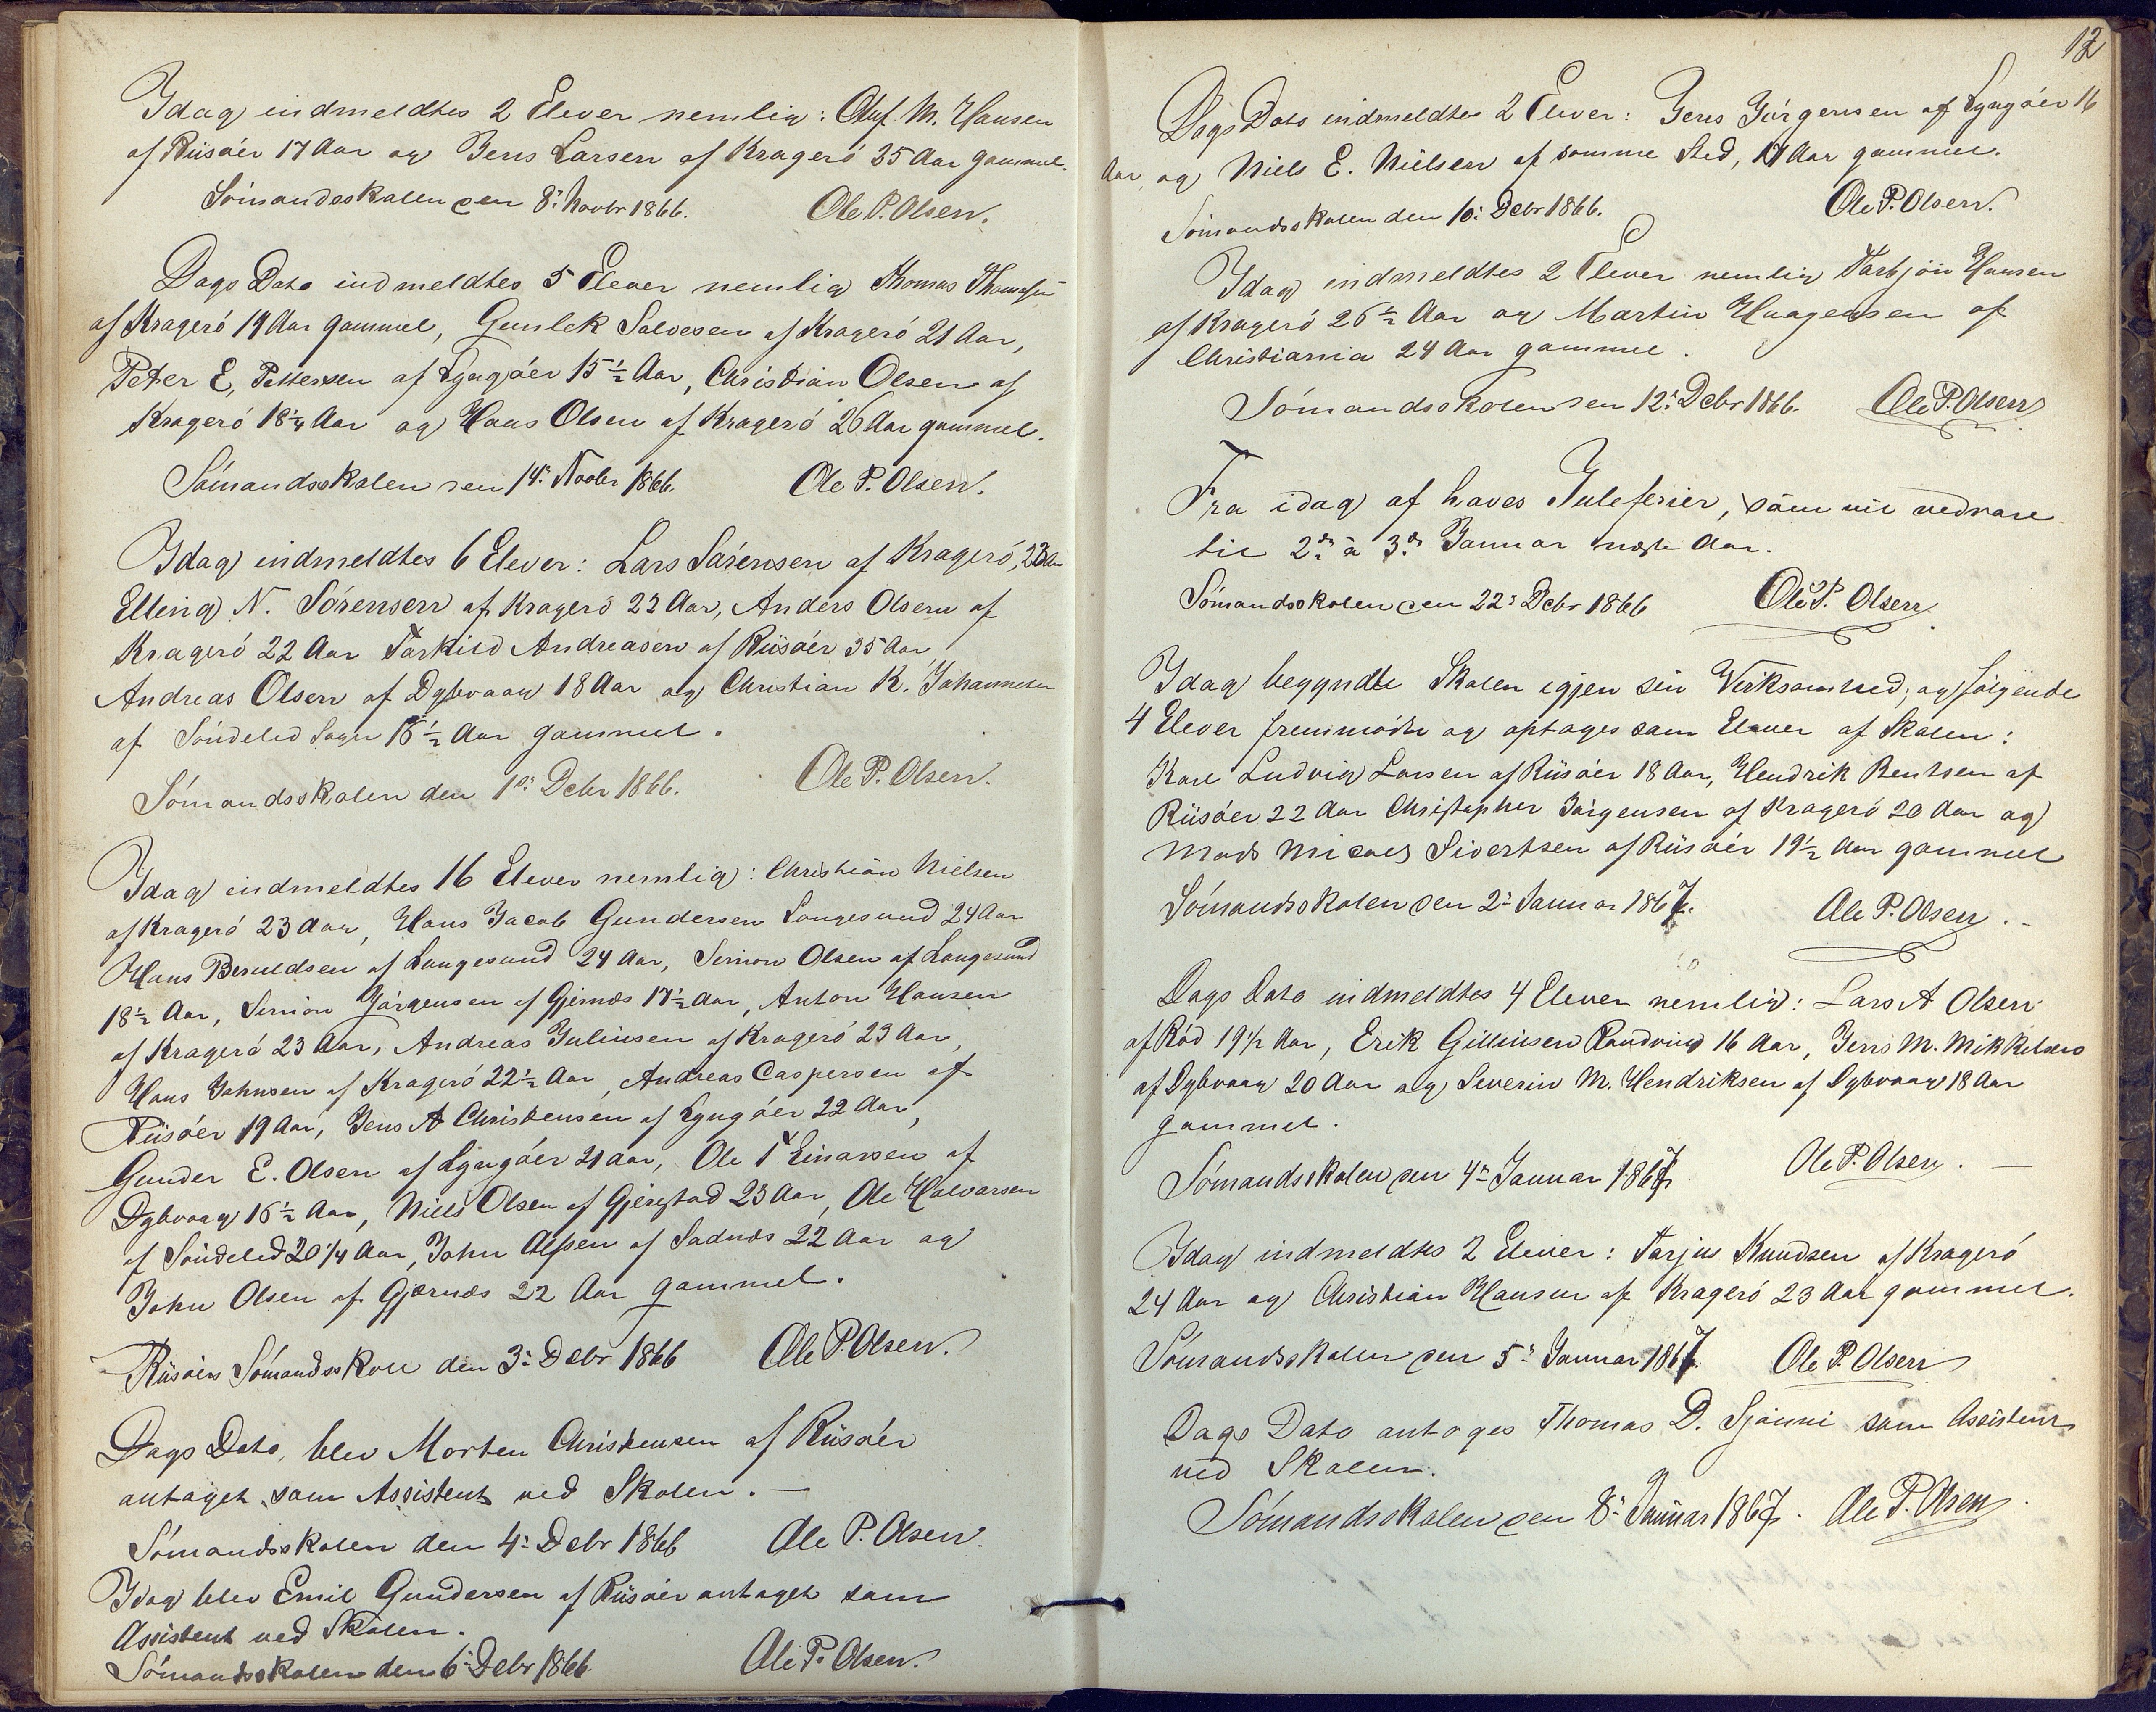 Idag indmeldtes 2 Elever nemlig: Oluf M. Hansen
af Riisöer 17 Aar og Jens Larsen af Kragerö 35 Aar gammel.
Sömandsskolen den 8: Novbr 1866. Ole P. Olsen.
Dags Dato indmeldtes 5 Elever nemlig Thomas Thomesen
af Kragerö 19 Aar gammel, Gunlek Salvesen af Kragerö 21 Aar,
Peter E, Pettersen af Lyngöer 15 1/2 Aar, Christian Olsen af
Kragerö 18 1/4 Aar og Hans Olsen af Kragerö 26 Aar gammel.
Sömandsskolen den 14: Novbr 1866. Ole P. Olsen.
Idag indmeldtes 6 Elever: Lars Sörensen af Kragerö, 23 Aar
Elling N. Sörensen af Kragerö 22 Aar, Anders Olsen af
Kragerö 22 Aar Torkild Andreasen af Riisöer 35 Aar,
Andreas Olsen af Dybvaag 18 Aar og Christian K. Johannesen
af Söndeled Sogn 18 1/2 Aar gammel.
Sömandsskolen den 1ste Debr 1866. Ole P. Olsen.
Idag indmeldtes 16 Elever nemlig: Christian Nielsen
af Kragerö 23 Aar, Hans Jacob Gundersen Langesund 24 Aar
Hans Beruldsen af Langesund 24 Aar, Simon Olsen af Langesund
18 1/2 Aar, Simon Jörgensen af Gjernæs 17 1/2 Aar, Anton Hansen
af Kragerö 23 Aar, Andreas Juliusen af Kragerö 23 Aar,
Hans Johnsen af Kragerö 22 1/2 Aar, Andreas Caspersen af
Riisöer 19 Aar, Jens A Christensen af Lyngöer 22 Aar,
Gunder E. Olsen af Lyngöer 21 Aar, Ole T Einarsen af
Dybvaag 16 1/2 Aar, Niels Olsen af Gjerstad 23 Aar, Ole Halvorsen
af Söndeled 20 1/4 Aar, John Olsen af Sadnæs 22 Aar og
John Olsen af Gjærnæs 22 Aar gammel.
Riisöers Sömandsskole den 3: Debr 1866 Ole P. Olsen.
Dags Dato, blev Morten Christensen af Riisöer
antaget som Assistent ved Skolen. —
Sömandsskolen den 4: Debr 1866 Ole P. Olsen.
Idag blev Emil Gundersen af Riisöer antaget som
Assistent ved Skolen.
Sömandsskolen den 6: Debr 1866. Ole P. Olsen.
12
Dags Dato indmeldtes 2 Elever: Jens Jörgensen af Lyngöer 16
Aar, og Niels E. Nielsen af samme Sted, 17 Aar gammel.
Sömandsskolen den 10: Debr 1866. Ole P. Olsen.
Idag indmeldtes 2 Elever nemlig Torbjön Hansen
af Kragerö 26 1/2 Aar og Martin Haagensen af
Christiania 24 Aar gammel.
Sömandsskolen den 12: Debr 1866. Ole P. Olsen
Fra idag af haves Juleferier, som vil vedvare
til 2den à 3die Januar næste Aar.
Sömandsskolen den 22: Debr 1866 Ole P. Olsen.
Idag begyndte Skolen igjen sin Virksomhed, og fölgende
4 Elever fremmödte og optages som Elever af Skolen:
Karl Ludvig Larsen af Riisöer 18 Aar, Hendrik Bentsen af
Riisöer 22 Aar Christopher Jörgensen af Kragerö 20 Aar og
Mads Micael Sivertsen af Riisöer 19 1/2 Aar gammel
Sömandsskolen den 2: Januar 1867. Ole P. Olsen.
Dags Dato indmeldtes 4 Elever nemlig: Lars A Olsen
af Röd 19 1/2 Aar, Erik Gilliusen Randvig 16 Aar, Jens M. Mikkelsen
af Dybvaag 20 Aar og Severin M. Hendriksen af Dybvaag 18 Aar
gammel.
Sömandsskolen den 4de Januar 1867 Ole P. Olsen. —
Idag indmeldtes 2 Elever: Tarjus Knudsen af Kragerö
24 Aar og Christian Hansen af Kragerö 23 Aar gammel.
Sömandsskolen den 5: Januar 1867. Ole P. Olsen
Dags Dato antoges Thomas D. Sjönni som Assistent
ved Skolen.
Sömandsskolen den 8: Januar 1867. Ole P. Olsen